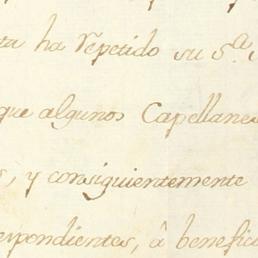 ta ha repetido su S.ª
que algunos Capellanes
s, y consiguientemente
espondientes, â benefic